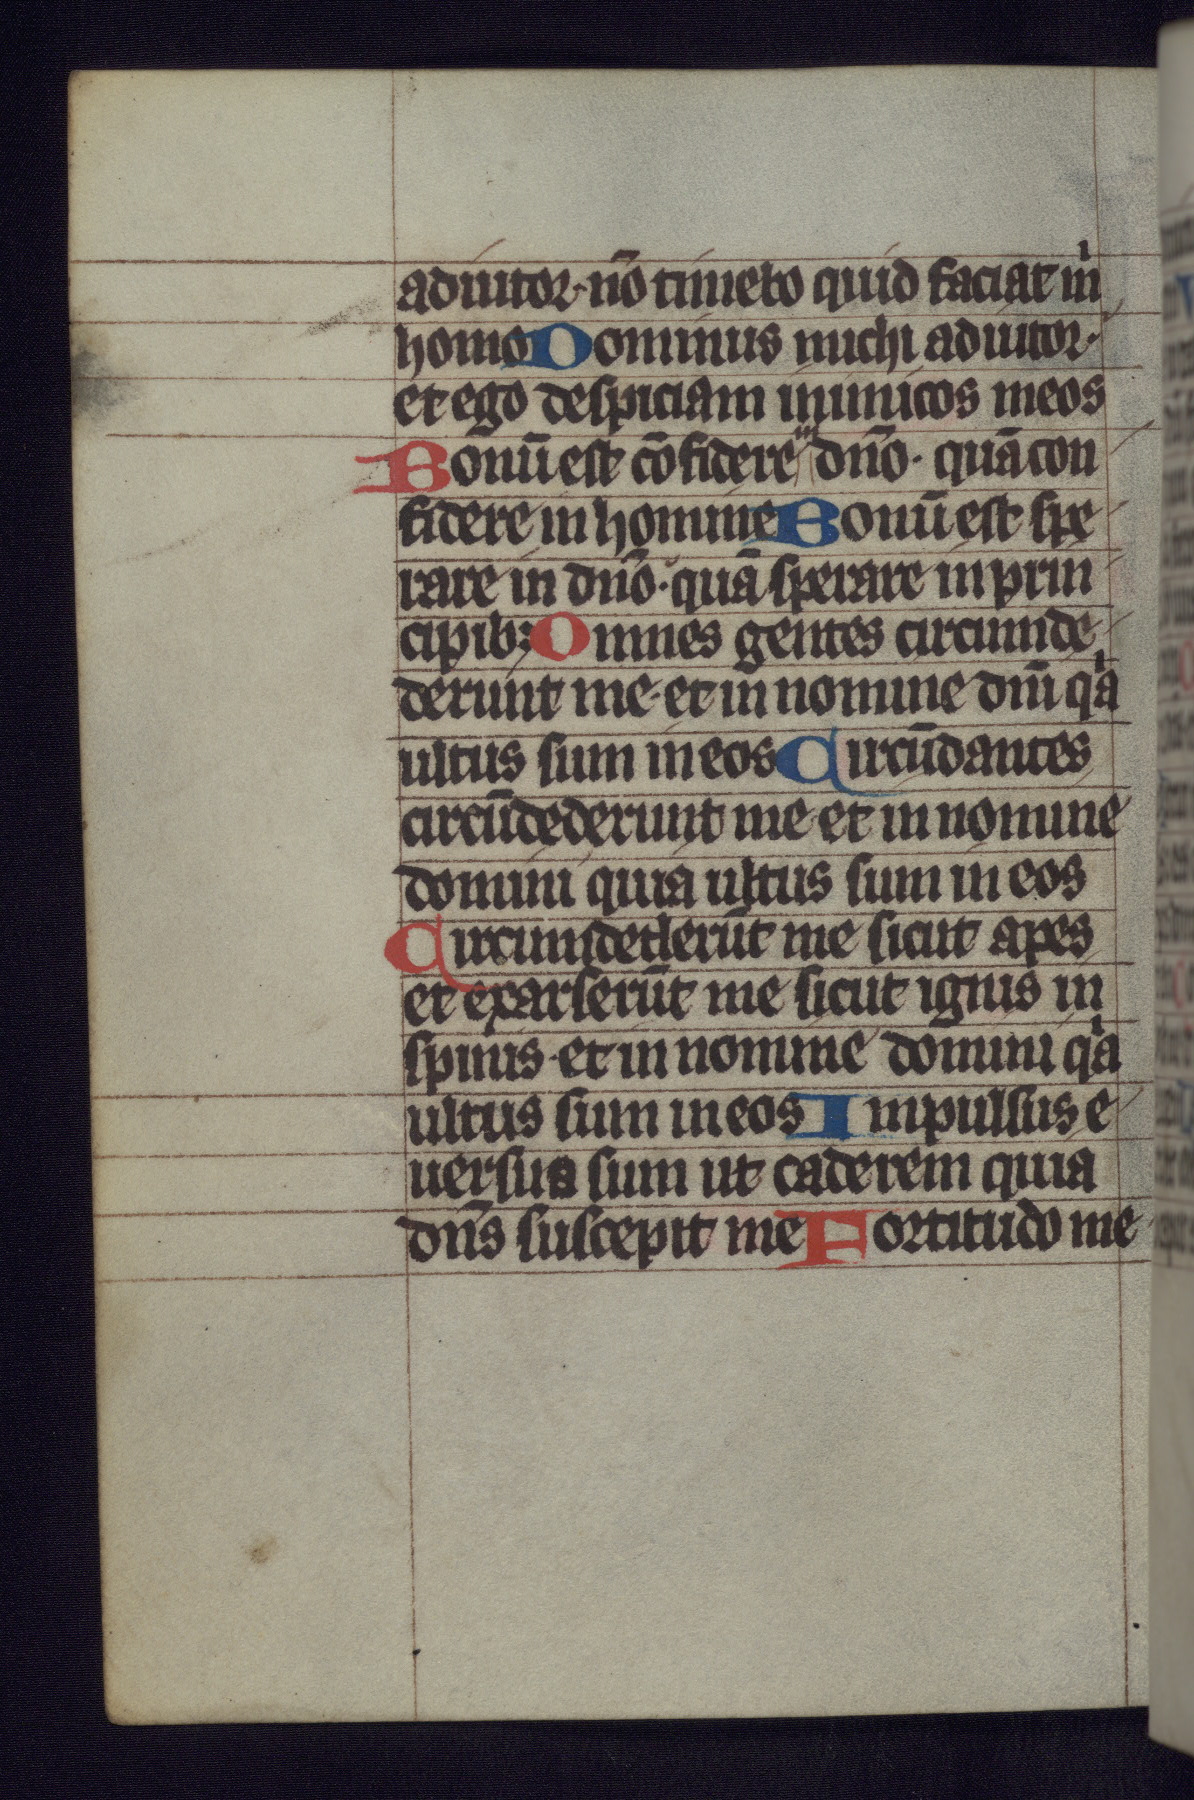 adiutor·nō timebo quid faciat m̍
homo Dominus michi adiutor·
et ego despiciam inimicos meos
Bonū est cōfidere in dn̄o· quā con
fidere in homine Bonū est spe
rare in dn̄o·quā sperare in prin
cipibꝫ Omnes gentes circumde
derunt me·et in nomine dn̄i qͥa
ultus sum in eos Circūdantes
circūdederunt me et in nomine
domini quia ultus sum in eos
Circumdederūt me sicut apes
et exarserūt me sicut ignis in
spinis·et in nomine domini qͥa
ultus sum in eos Impulsus e
uersus sum ut caderem quia
dn̄s suscepit me Fortitudo me